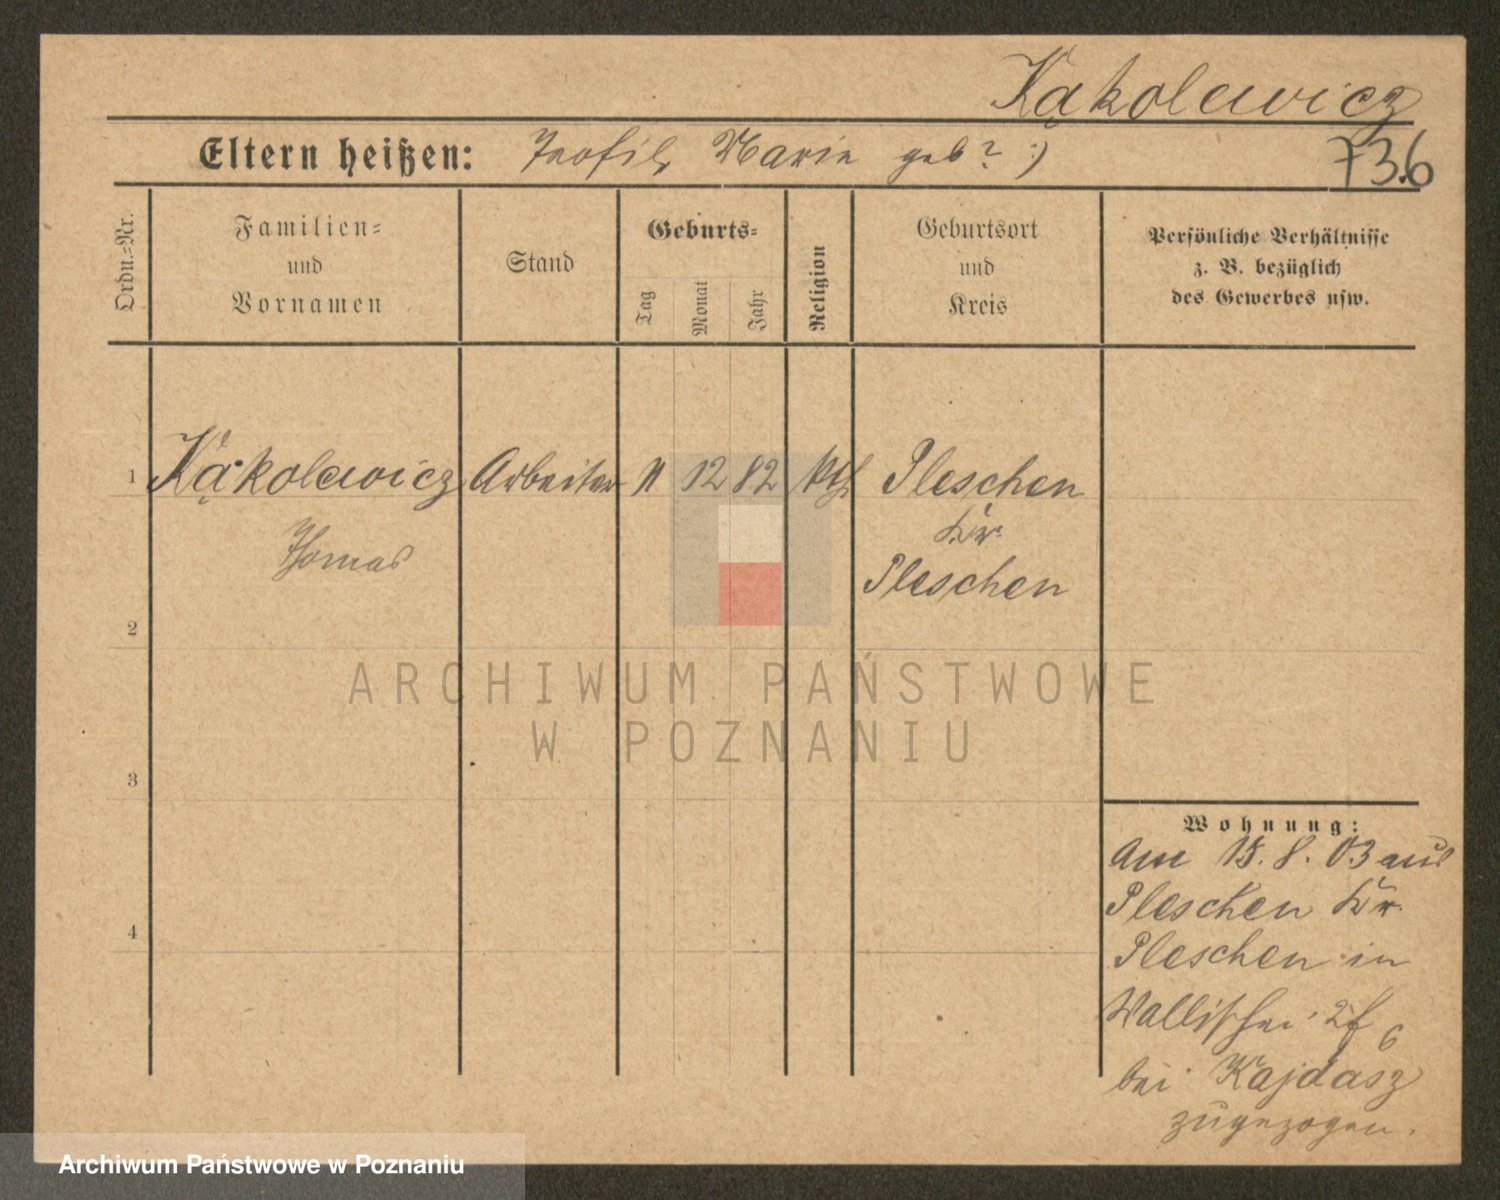 Kąkolewicz
Eltern heißen: Teofil, Marie geb? :)
736
Ordn.=Nr.
Familien=
und
Vornamen
Stand
Geburts=
Tag
Monat
Jahr
Religion
Geburtsort
und
Kreis
Persönliche Verhältnisse
z. B. bezüglich
des Gewerbes usw.
1 Kąkolewicz Arbeiter 11 12 82 kth Pleschen
Thomas
Kr.
Pleschen
2
3
4
ARCHIWUM PAŃSTWOWE
W POZNANIU
Wohnung:
Am 15. 8. 03 aus
Pleschen Kr.
Pleschen in
Wallischei 2f 6
bei Kajdasz
zugezogen.
Archiwum Państwowe w Poznaniu